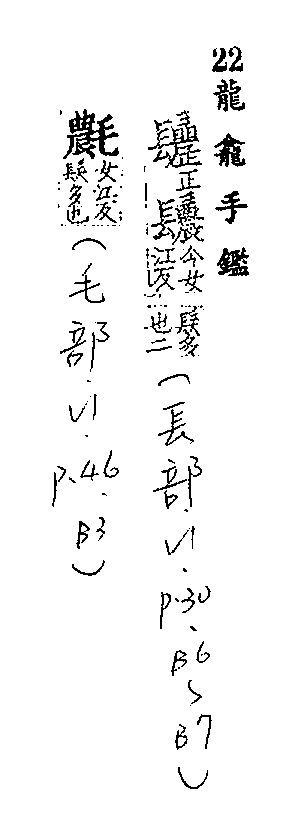 22龍龕手鑑
正今女江反髮多也二(長部.V1.P.30、B6~B7)
女江反髮多也(毛部.V1.P.46.B3)